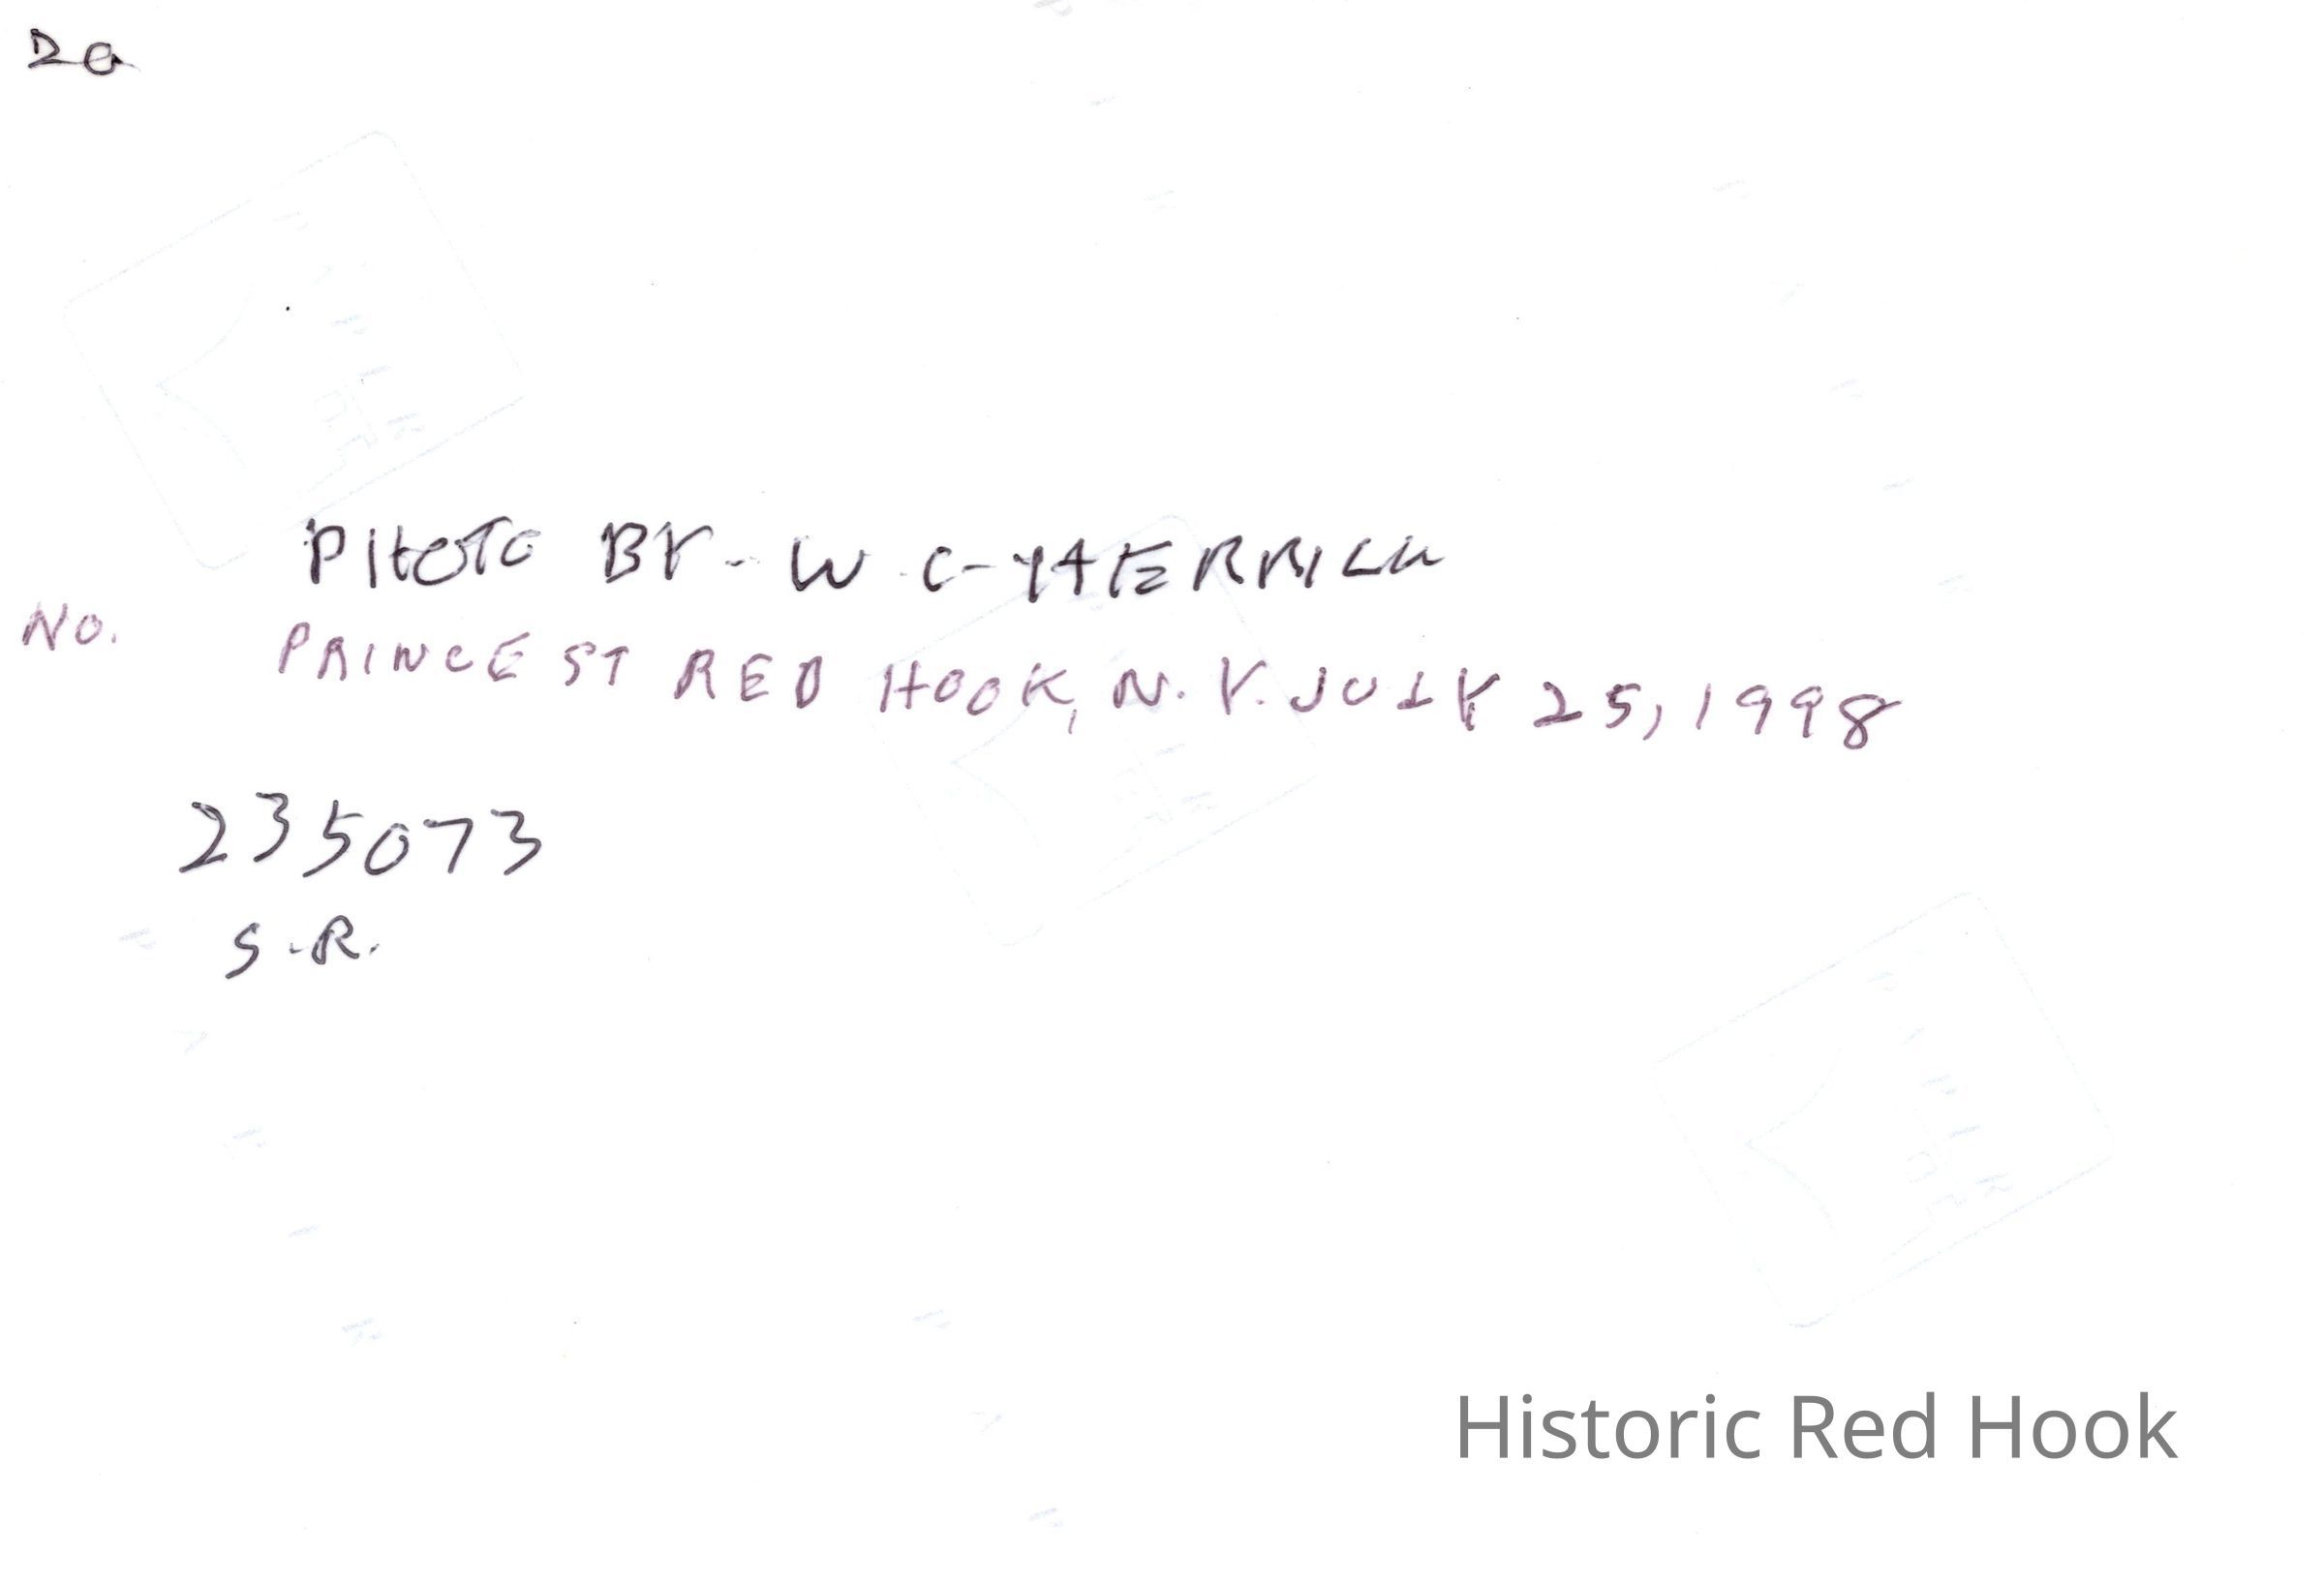 PHOTO BY - W. C - HERRICK
NO. PRINCE ST RED HOOK, N.Y. JULY 25, 1998
235073
S.R.
Historic Red Hook